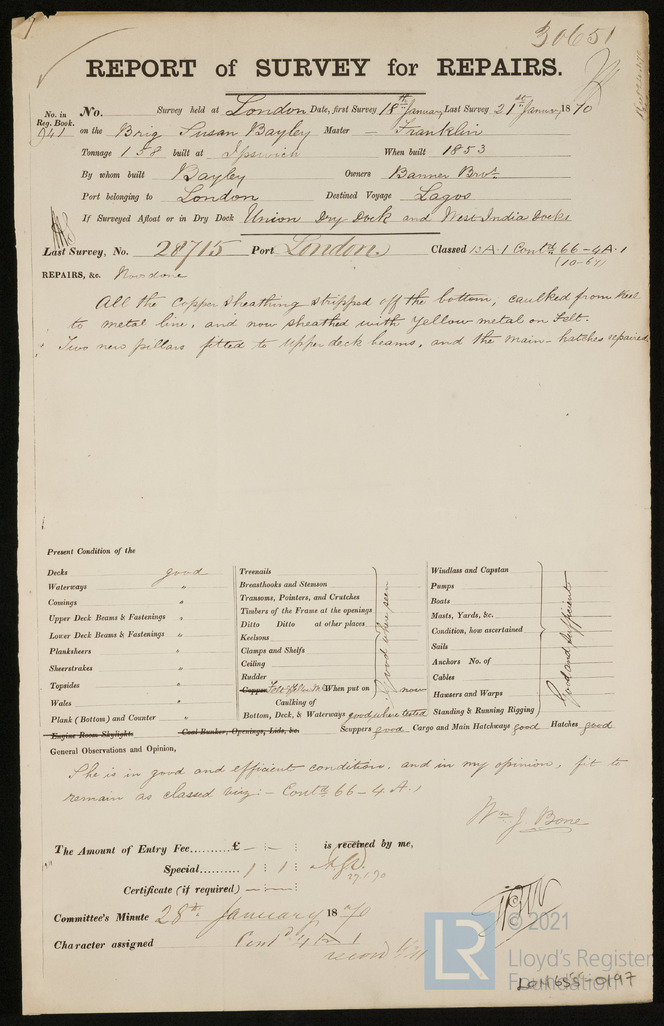 30651
REPORT of SURVEY for REPAIRS.
No. in Reg. Book.
941
No. Survey held at London Date, first Survey 18th January Last Survey 21st January 1870
on the Brig Susan Bayley Master — Franklin
Tonnage 158 built at Ipswich When built 1853
By whom built Bayley Owners Banner Bros.
Port belonging to London Destined Voyage Lagos
If Surveyed Afloat or in Dry Dock Union Dry Dock and West India Docks
Last Survey, No. 28715 Port London. Classed 12 A.1 Contd 66-4A.1
REPAIRS, &c. Now done
All the copper sheathing stripped off the bottom, caulked from keel
to metal line, and now sheathed with yellow metal on Felt.
Two new pillars fitted to upper deck beams, and the main-hatches repaired
Present Condition of the
Decks good
Waterways "
Comings "
Upper Deck Beams & Fastenings "
Lower Deck Beams & Fastenings "
Planksheers "
Sheerstrakes "
Topsides "
Wales "
Plank (Bottom) and Counter "
Engine Room Skylight. Coal Bunker, Openings, Lids, &c.
Treenails
Breasthooks and Stemson
Transoms, Pointers, and Crutches
Timbers of the Frame at the openings
Ditto Ditto at other places
Keelsons
Clamps and Shelfs
Ceiling
Rudder
Good where seen
Copper Felt & Yellow M. When put on now
Caulking of
Bottom, Deck, & Waterways good where tested
Windlass and Capstan
Pumps
Boats
Masts, Yards, &c.
Condition, how ascertained
Sails
Anchors No. of
Cables
Hawsers and Warps
Standing & Running Rigging
Good and sufficient
Scuppers good Cargo and Main Hatchways good Hatches good
General Observations and Opinion,
She is in good and efficient condition, and in my opinion, fit to
remain as classed viz:- Contd 66-4 A.1
Wm J. Bone
The Amount of Entry Fee..........£ — : — : is received by me,
Special.......... 1 : 1 :
27.1.70
Certificate (if required)
Committee's Minute 28th January 1870
Character assigned Contd 4 A 1
© 2021
LR
Lloyd's Register
Foundation
LON655-0197